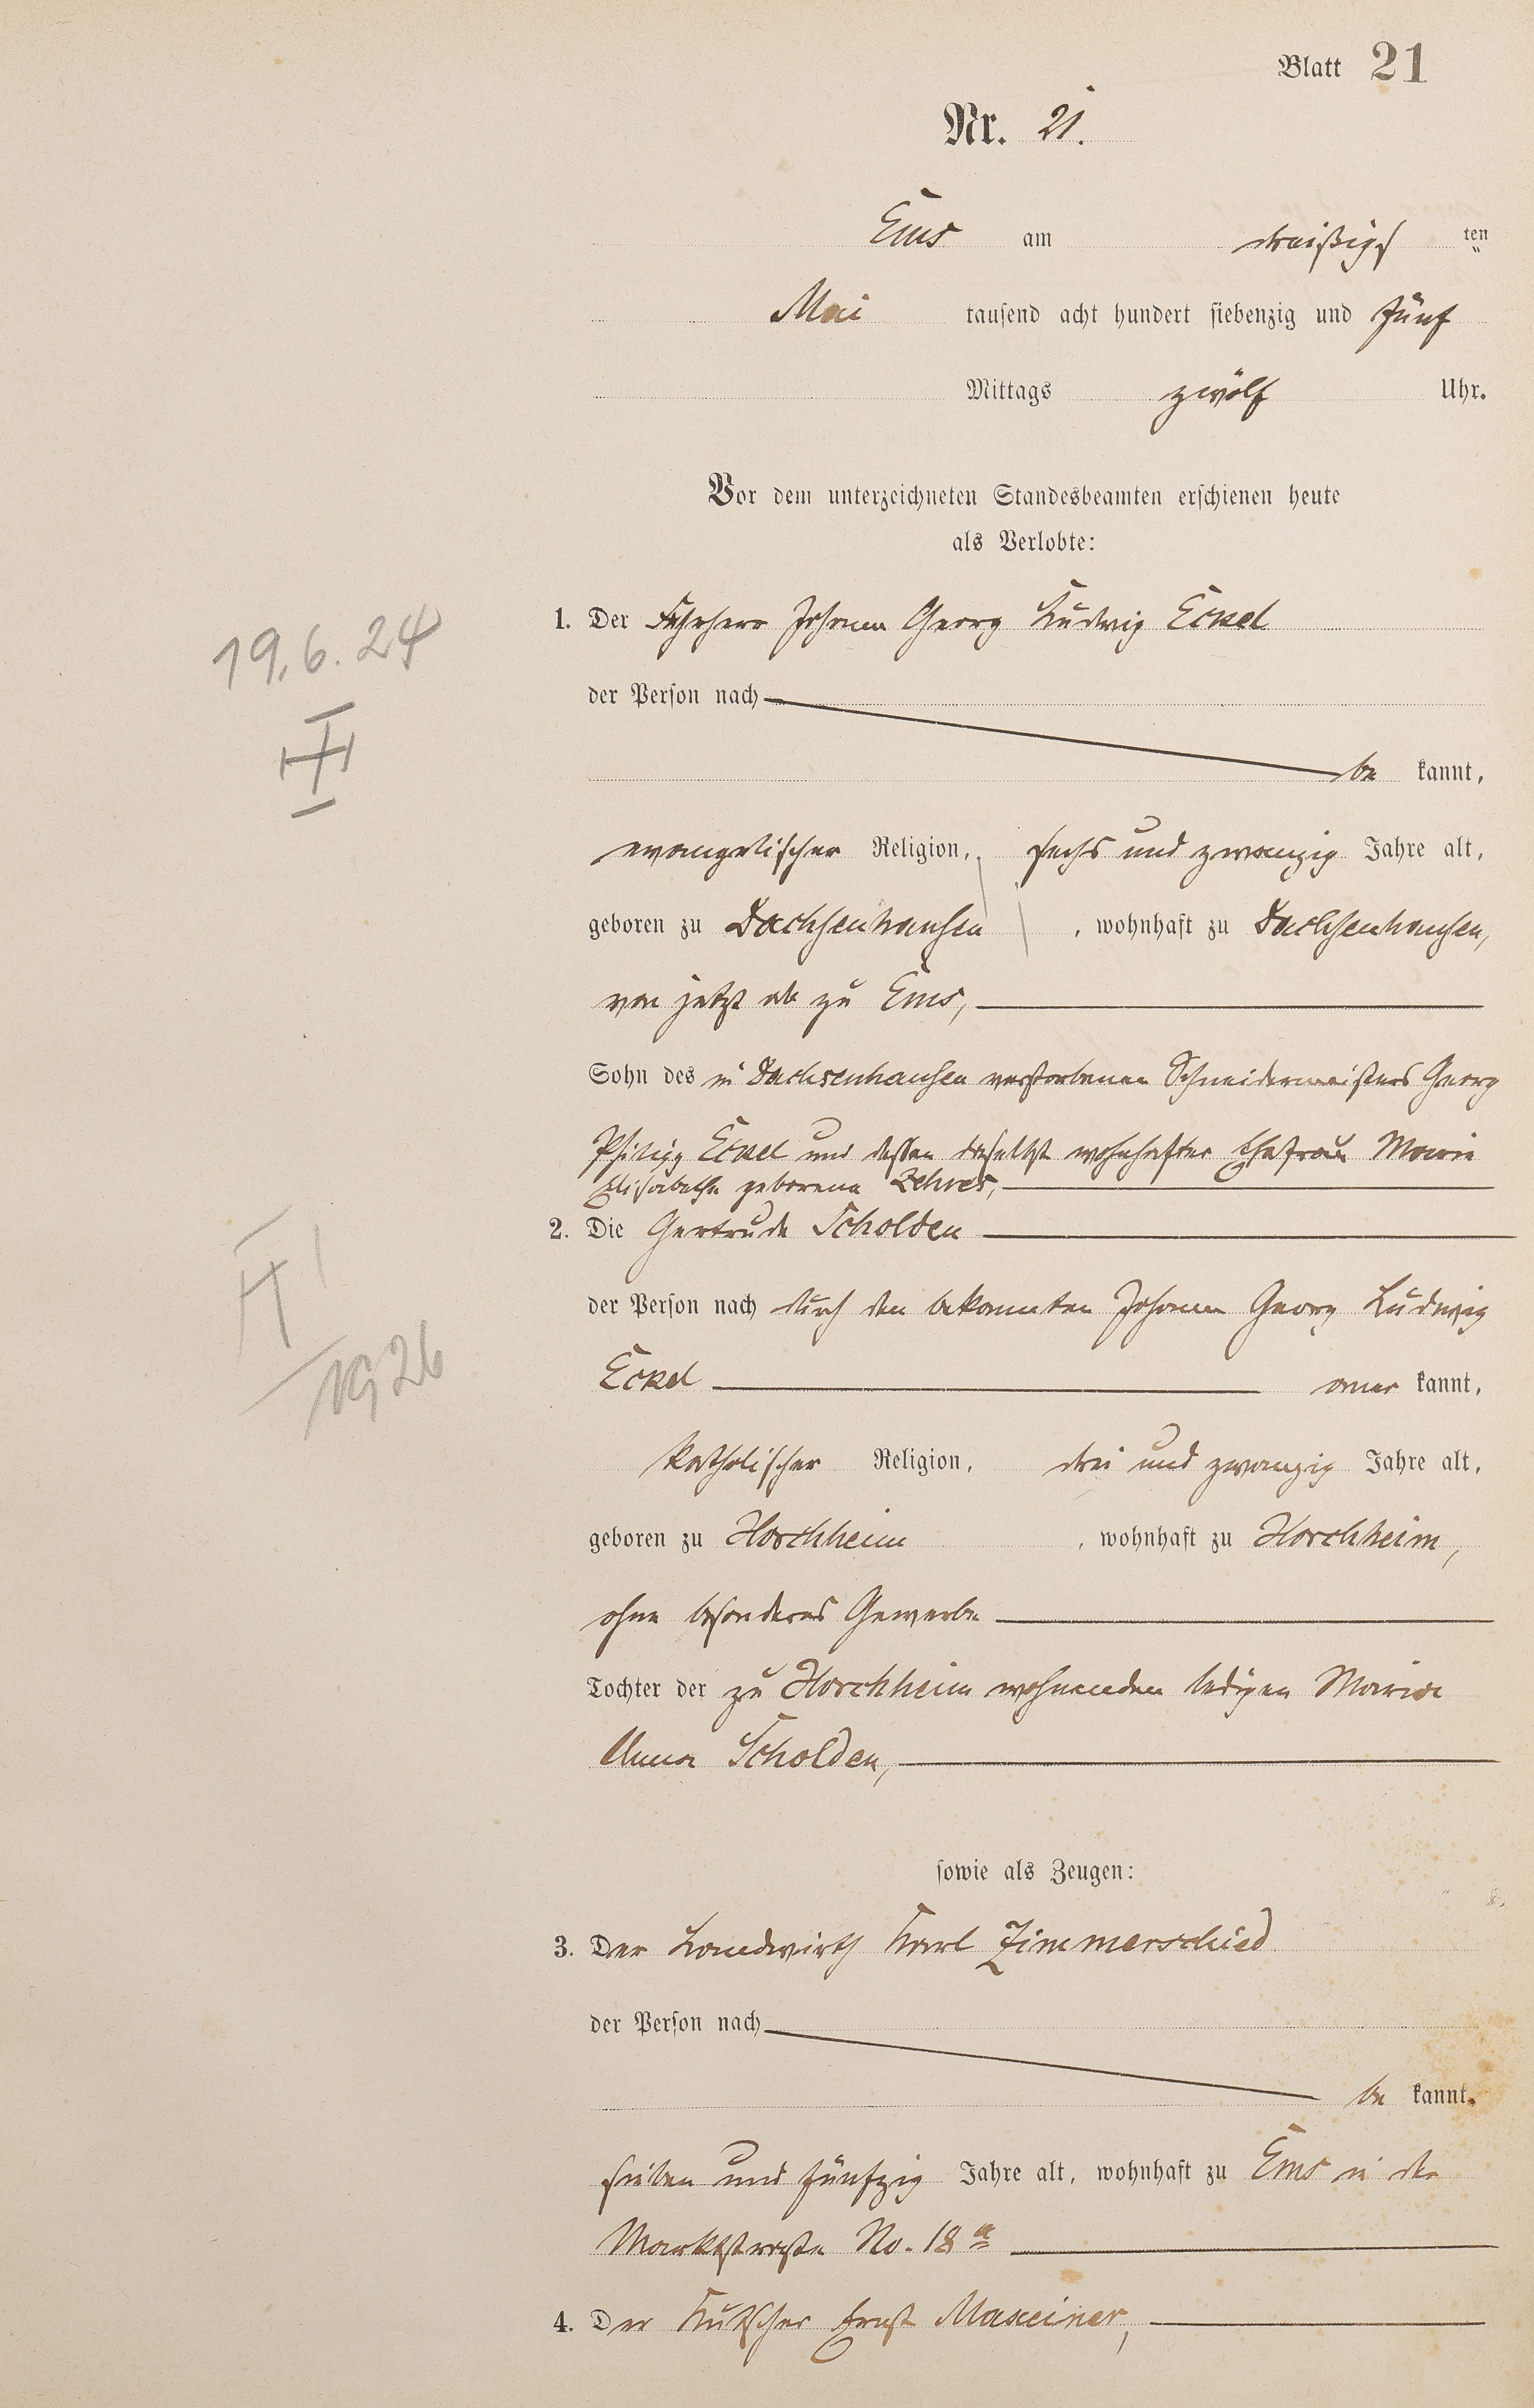 Blatt 21
Nr. 21.
Ems am dreißigs ten
Mai tausend acht hundert siebenzig und fünf
Mittags zwölf Uhr.
Vor dem unterzeichneten Standesbeamten erschienen heute
als Verlobte:
1. Der Johann Georg Ludwig Eckel
der Person nach
be kannt,
evangelischer Religion, sechs und zwanzig Jahre alt,
geboren zu Dachsenhausen, wohnhaft zu Dachsenhausen,
von jetzt ab zu Ems,
Sohn des in Dachsenhausen verstorbenen Schneidermeisters Georg
Philipp Eckel und dessen daselbst wohnhafter Ehefrau Marie
Elisabethe geborene Zehres,
2. Die Gertrude Scholden
der Person nach durch den bekannten Johann Georg Ludwig
Eckel aner kannt,
katholischer Religion, drei und zwanzig Jahre alt,
geboren zu Horchheim, wohnhaft zu Horchheim,
ohne besonderes Gewerbe
Tochter der zu Horchheim wohnenden ledigen Maria
Anna Scholden,
sowie als Zeugen:
3. Der Landwirth Karl Zimmerschied
der Person nach
be kannt,
sieben und fünfzig Jahre alt, wohnhaft zu Ems in der
Marktstraße No. 18 a
4. Der Kutscher Ernst Maxeiner,
19.6.24
II
1926